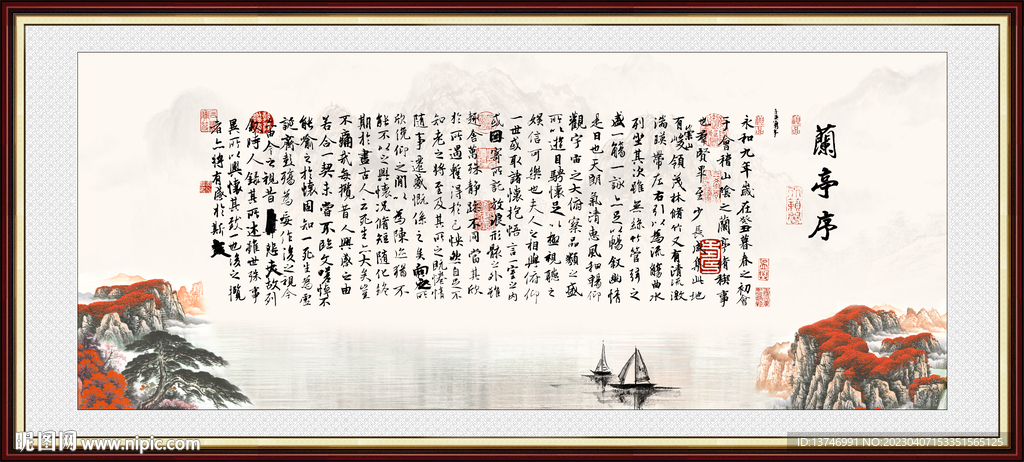 蘭亭序
永和九年歲在癸丑暮春之初會
于會稽山陰之蘭亭脩稧事
也羣賢畢至少長咸集此地
有崇山峻領茂林脩竹又有清流激
湍暎帶左右引以為流觴曲水
列坐其次雖無絲竹管弦之
盛一觴一詠亦足以暢叙幽情
是日也天朗氣清惠風和暢仰
觀宇宙之大俯察品類之盛
所以遊目騁懷足以極視聽之
娛信可樂也夫人之相與俯仰
一世或取諸懷抱悟言一室之内
或因寄所託放浪形骸之外雖
趣舍萬殊靜躁不同當其欣
於所遇蹔得於己怏然自足不
知老之將至及其所之既惓情
隨事遷感慨係之矣向之所
欣俛仰之閒以為陳迹猶不
能不以之興懷況脩短隨化終
期於盡古人云死生亦大矣豈
不痛哉每攬昔人興感之由
若合一契未嘗不臨文嗟悼不
能喻之於懷固知一死生為虛
誕齊彭殤為妄作後之視今
亦由今之視昔悲夫故列
叙時人錄其所述雖世殊事
異所以興懷其致一也後之攬
者亦將有感於斯文
昵图网 www.nipic.com
ID:13746991 NO:20230407153351565125